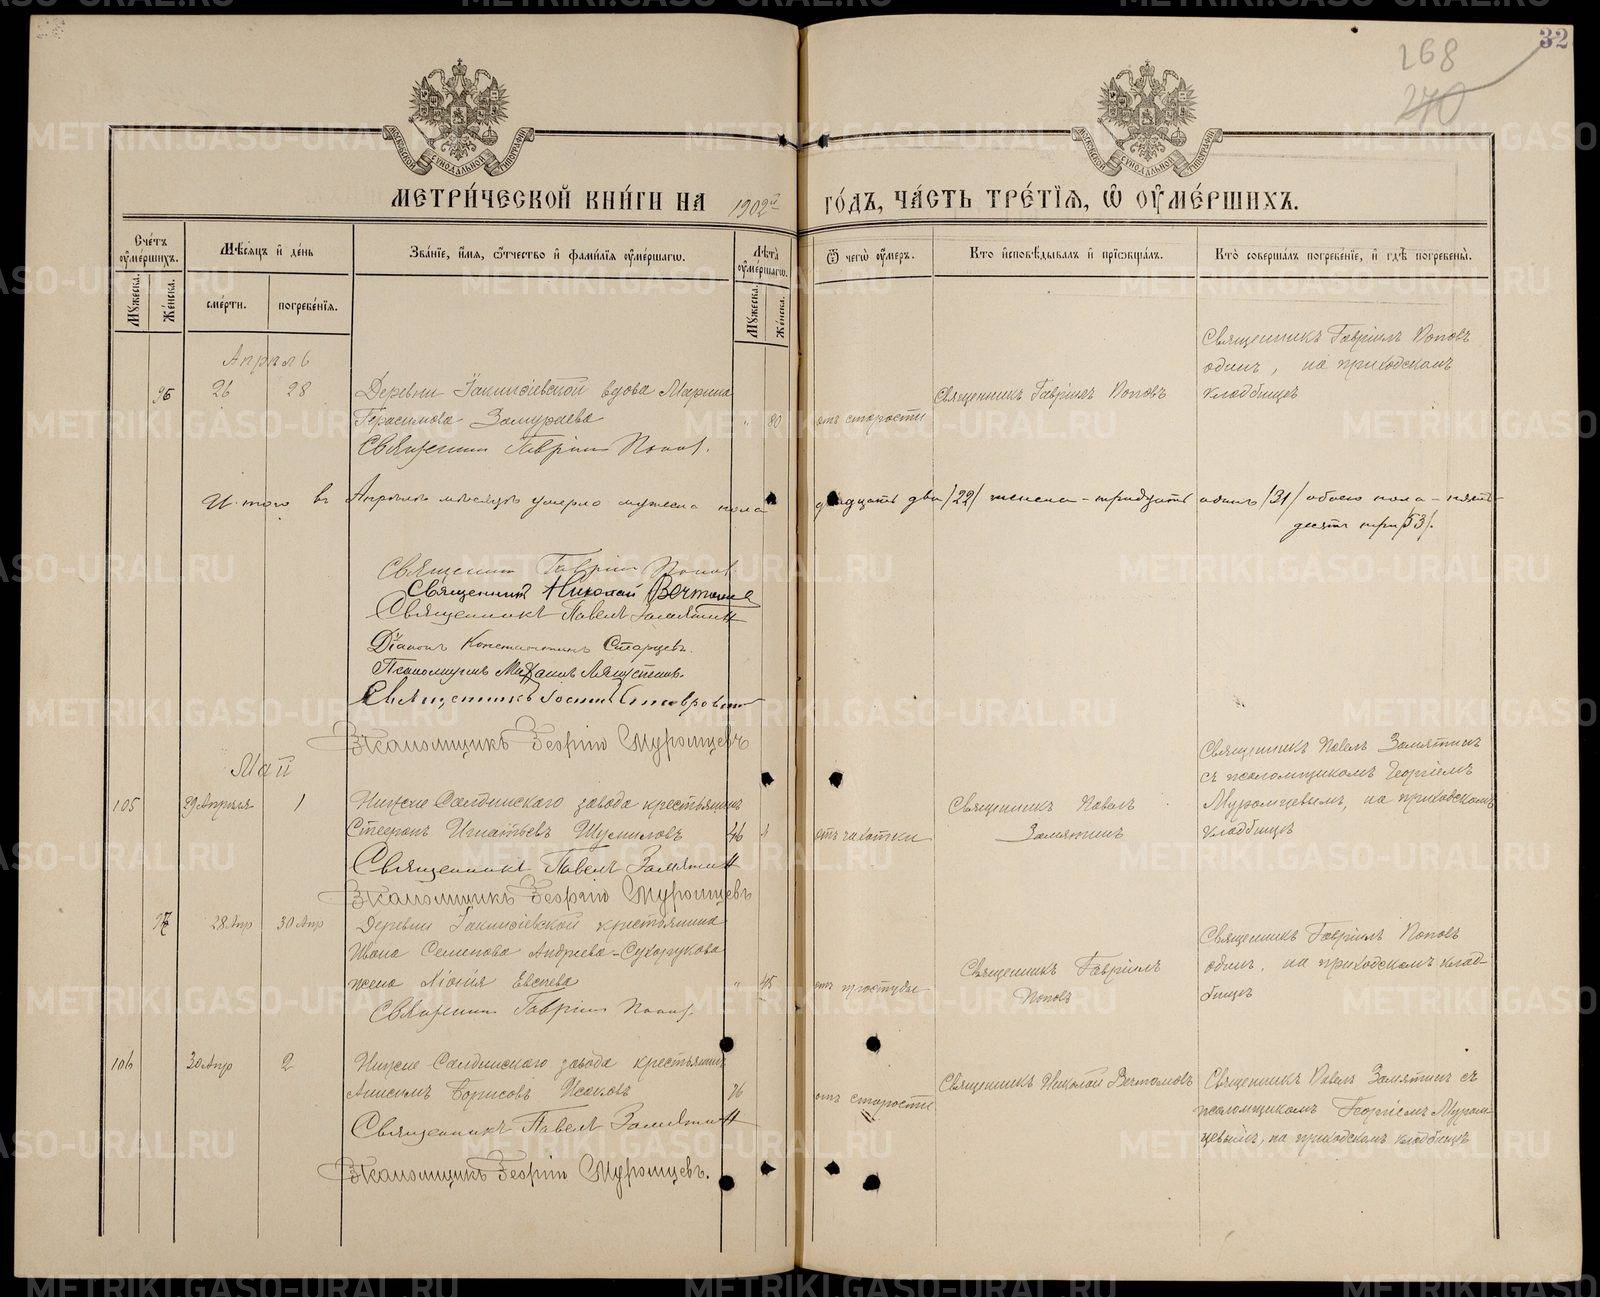 32
268
270
МОСКОВСКОЙ СѴНОДАЛЬНОЙ ТИПОГРАФІИ
МОСКОВСКОЙ СѴНОДАЛЬНОЙ ТИПОГРАФІИ
МЕТРИ́ЧЕСКОЙ КНИ́ГИ НА 1902й ГО́ДЪ, ЧА́СТЬ ТРЕ́ТІѦ, Ѽ ОУ҆МЕ́РШИХЪ.
Сче́тъ оу҆ме́ршихъ.
Мѣ́сѧцъ и҆ де́нь
Зва́нїе, и҆́мѧ, ѻ҆́тчество и҆ фами́лїѧ оу҆ме́ршагѡ.
Лѣ́та оу҆ме́ршагѡ.
Ѿ чегѡ̀ оу҆́меръ.
Кто̀ и҆сповѣ́дывалъ и҆ прїѡбща́лъ.
Кто̀ соверша́лъ погребе́нїе, и҆ гдѣ̀ погребены̀.
Му́жеска.
Же́нска.
сме́рти.
погребе́нїѧ.
Му́жеска.
Же́нска.
Апрѣль
96 26 28 Деревни Іакинѳіевской вдова Марина
Герасимова Замураева 80
Священник Гавріил Попов.
отъ старости
Священникъ Гавріилъ Поповъ
Священникъ Гавріилъ Поповъ
одинъ, на приходскомъ
кладбищѣ
Итого въ Апрѣлѣ мѣсяцѣ умерло мужеска пола двадцать два /22/ женска - тридцать одинъ /31/ обоего пола - пять-
десятъ три /53/.
Священник Гавріил Попов.
Священникъ Николай Вечтомов
Священникъ Павелъ Замятин
Діаконъ Константинъ Старцевъ.
Псаломщикъ Михаилъ
Священникъ
Псаломщикъ Георгій Муромцевъ
Май
105 29 Апрѣля 1 Нижне Салдинскаго завода крестьянинъ
Стефанъ Игнатьевъ Шумиловъ 46
Священникъ Павелъ Замятин
Псаломщикъ Георгій Муромцевъ
отъ чахотки
Священникъ Павелъ
Замятинъ
Священникъ Павелъ Замятинъ
съ псаломщикомъ Георгіемъ
Муромцевымъ, на приходскомъ
кладбищѣ
97 28 Апр 30 Апр Деревни Іакинѳіевской крестьянина
Ивана Семенова Андреева-Сухорукова
жена Евсеева 45
Священник Гавріил Попов.
отъ простуды
Священникъ Гавріилъ
Поповъ
Священникъ Гавріилъ Поповъ
одинъ, на приходскомъ клад-
бищѣ
106 30 Апр 2 Нижне Салдинскаго завода крестьянинъ
Анисимъ Борисовъ Исаковъ 76
Священникъ Павелъ Замятин
Псаломщикъ Георгій Муромцевъ.
отъ старости
Священникъ Николай Вечтомовъ
Священникъ Павелъ Замятинъ съ
псаломщикомъ Георгіемъ Муром-
цевымъ, на приходскомъ кладбищѣ
METRIKI.GASO-URAL.RU